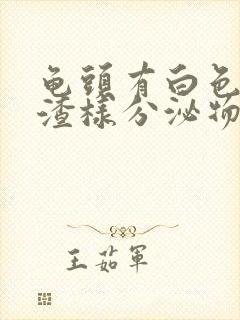 龟头有白色
渣样分泌物
王茹軍